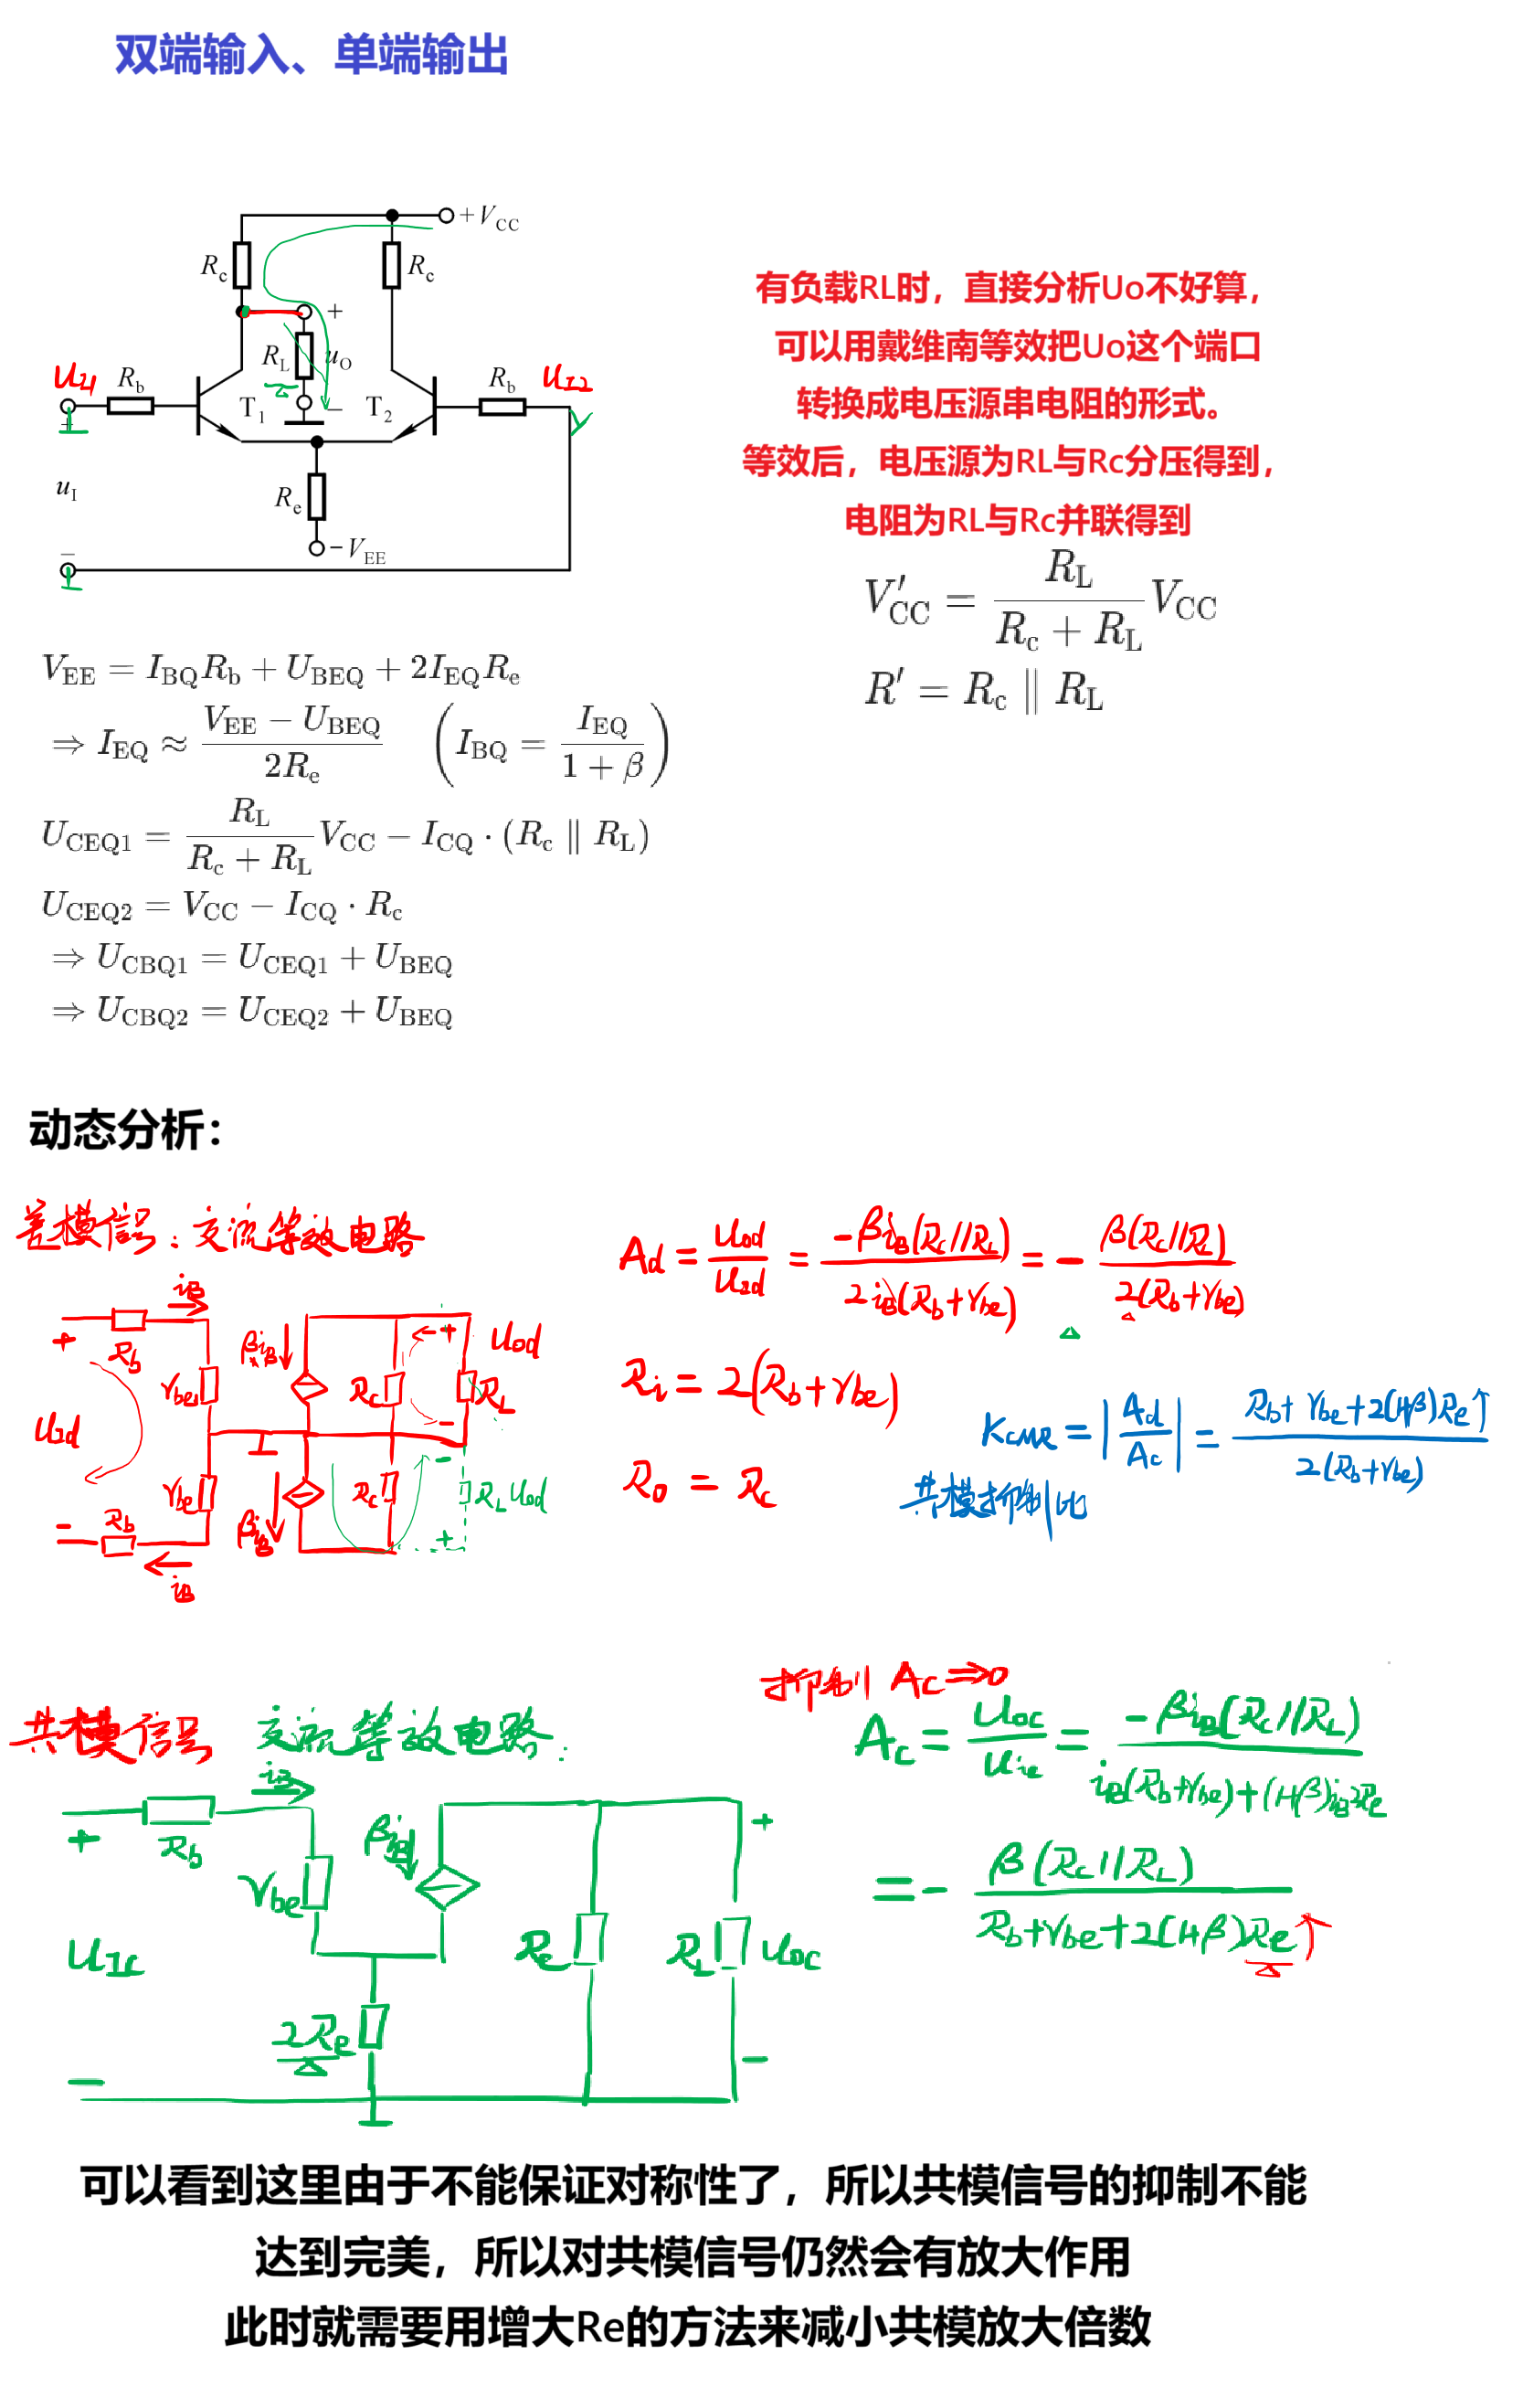 双端输入、单端输出
+V_CC
R_c
R_c
+
R_L
u_O
−
u_I1
R_b
T_1
T_2
R_b
u_I2
+
u_I
R_e
−
−V_EE
有负载RL时，直接分析Uo不好算，
可以用戴维南等效把Uo这个端口
转换成电压源串电阻的形式。
等效后，电压源为RL与Rc分压得到，
电阻为RL与Rc并联得到
V'_CC = R_L / (R_c + R_L) V_CC
R' = R_c ∥ R_L
V_EE = I_BQ R_b + U_BEQ + 2I_EQ R_e
⇒ I_EQ ≈ (V_EE − U_BEQ) / 2R_e (I_BQ = I_EQ / (1 + β))
U_CEQ1 = R_L / (R_c + R_L) V_CC − I_CQ · (R_c ∥ R_L)
U_CEQ2 = V_CC − I_CQ · R_c
⇒ U_CBQ1 = U_CEQ1 + U_BEQ
⇒ U_CBQ2 = U_CEQ2 + U_BEQ
动态分析：
差模信号：交流等效电路
i_B
+
R_b
r_be1
βi_B
R_c
+
−
R_L
u_od
u_Id
r_be
βi_B
R_c
−
R_L u_od
+
−
R_b
i_B
A_d = u_od / u_Id = −βi_B(R_c//R_L) / 2i_B(R_b+r_be) = − β(R_c//R_L) / 2(R_b+r_be)
R_i = 2(R_b+r_be)
R_o = R_c
K_CMR = |A_d / A_c| = (R_b+r_be+2(1+β)R_e↑) / 2(R_b+r_be)
共模抑制比
抑制 A_c⇒0
共模信号 交流等效电路.
i_B
+
R_b
r_be
βi_B
R_c
R_L
+
u_oc
−
u_Ic
2R_e
−
A_c = u_oc / u_ic = −βi_B(R_c//R_L) / (i_B(R_b+r_be)+(1+β)i_B 2R_e)
= − β(R_c//R_L) / (R_b+r_be+2(1+β)R_e↑)
可以看到这里由于不能保证对称性了，所以共模信号的抑制不能
达到完美，所以对共模信号仍然会有放大作用
此时就需要用增大Re的方法来减小共模放大倍数